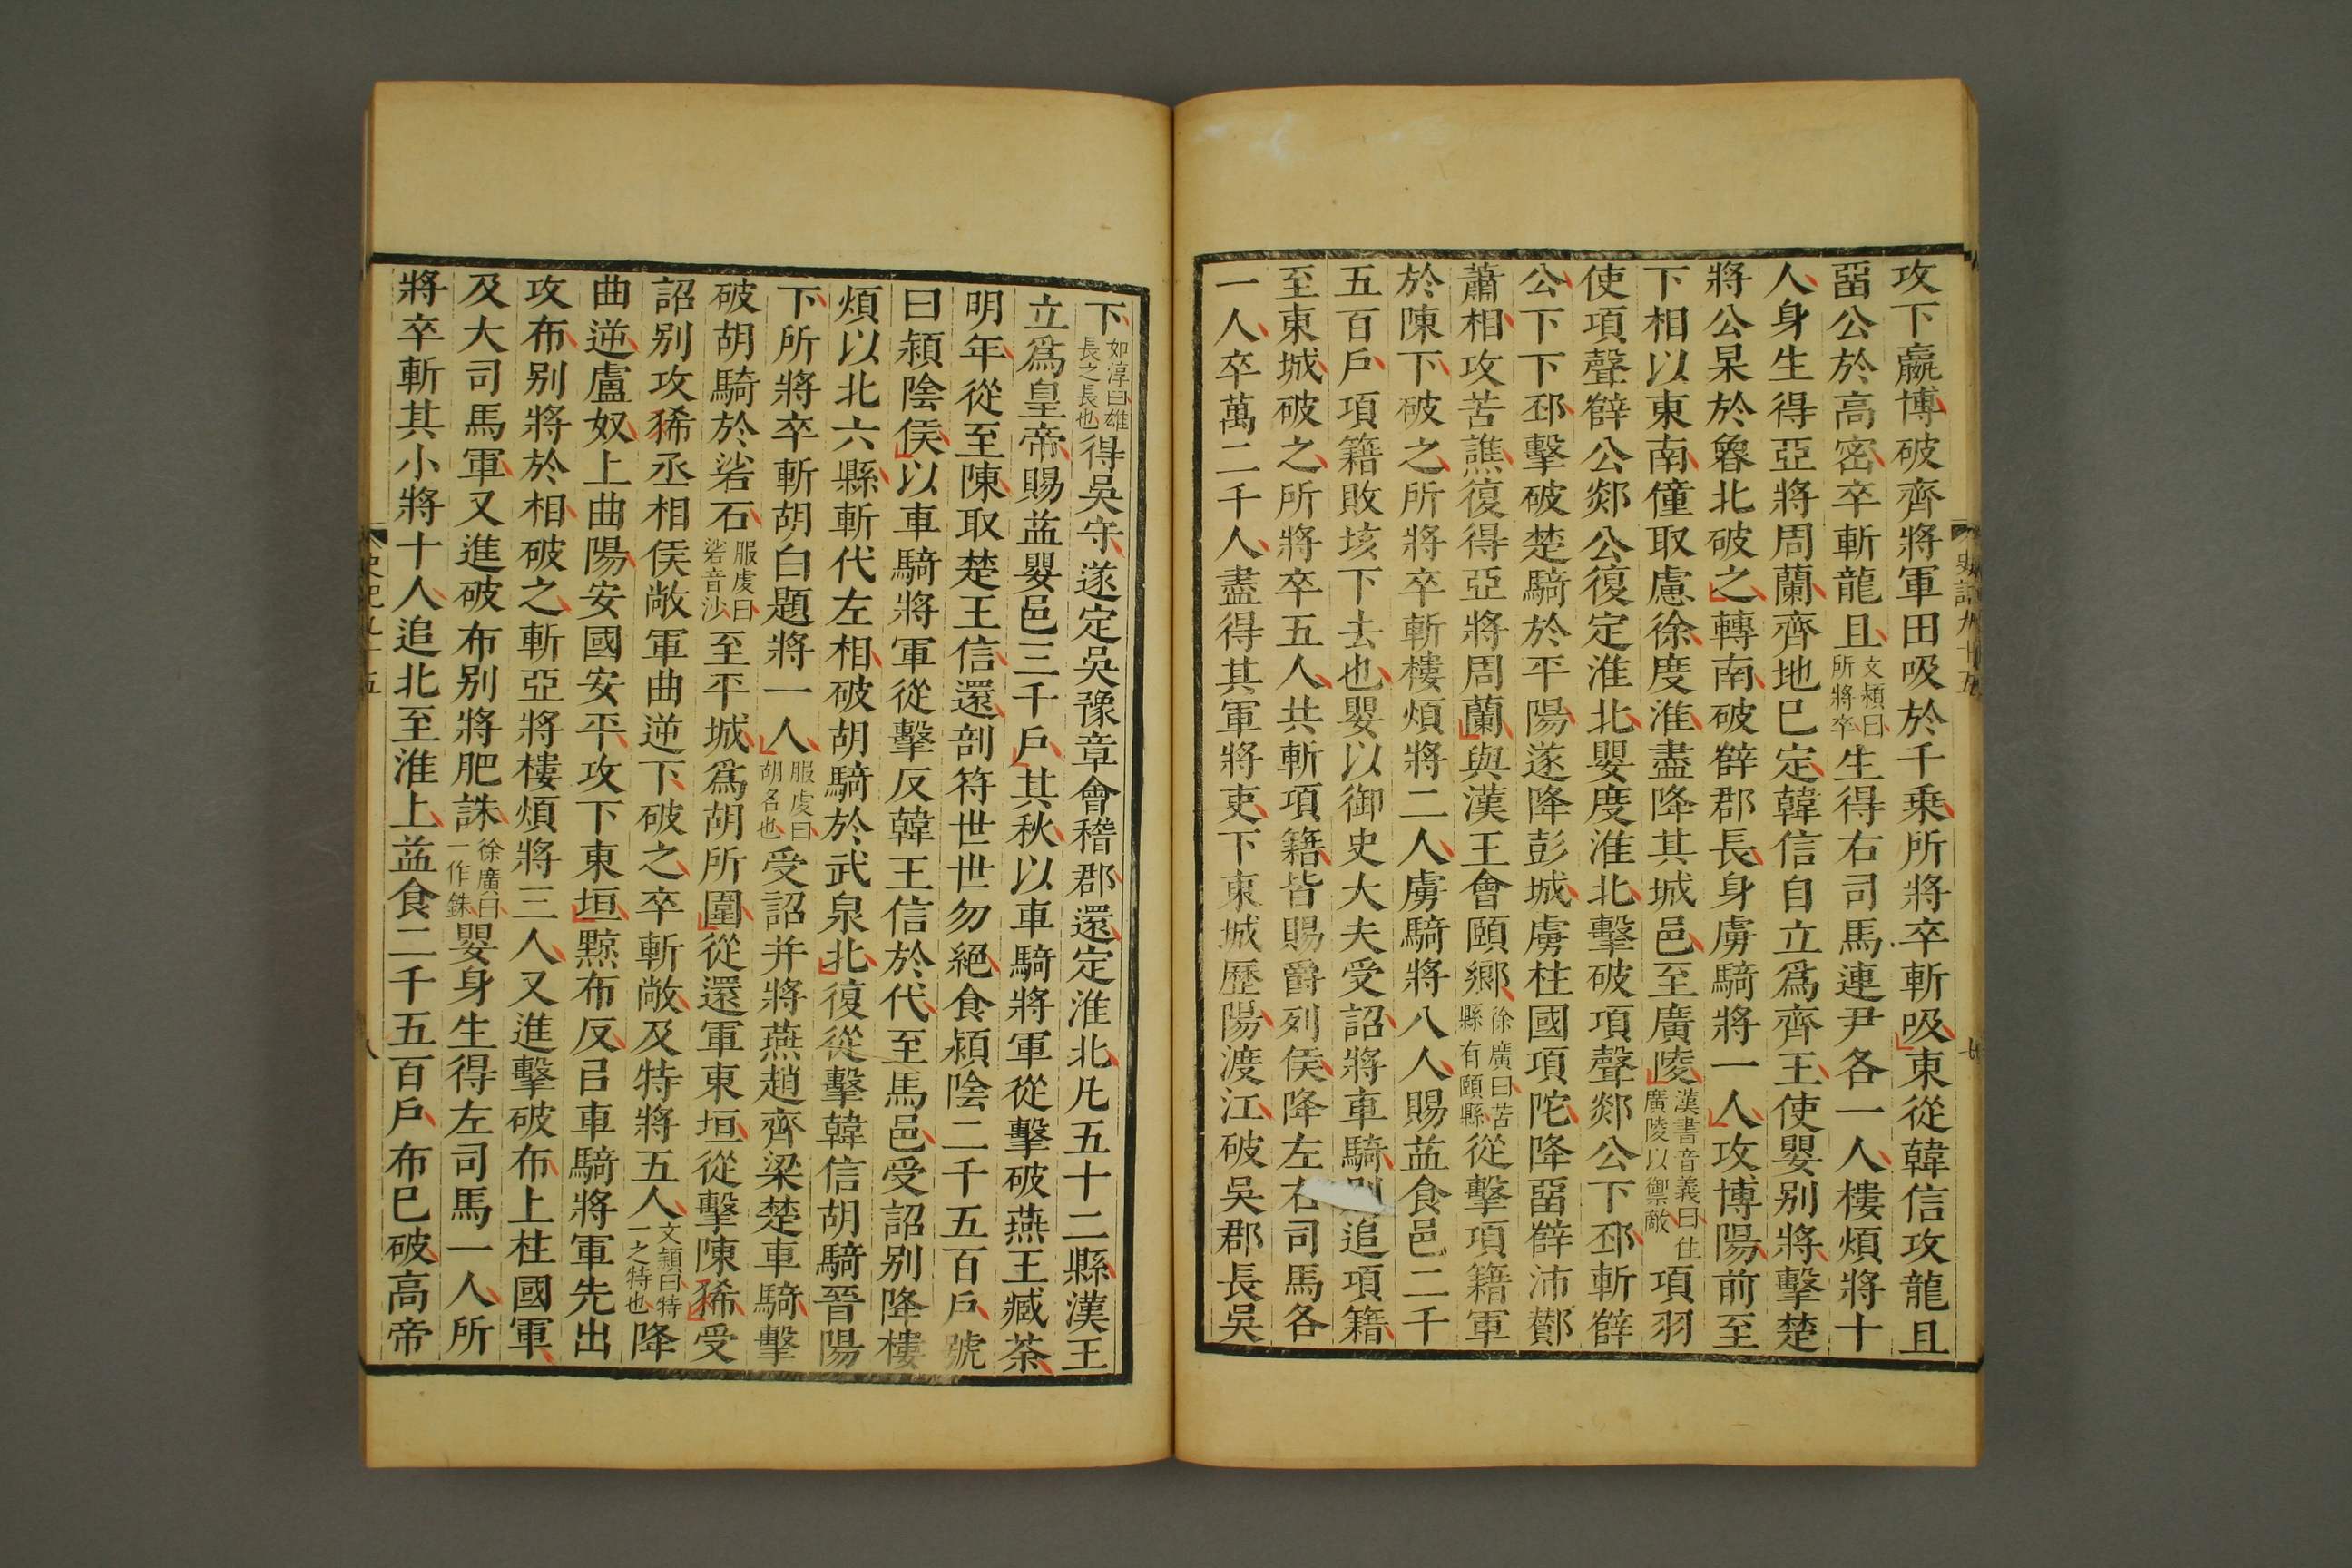 攻下嬴博破齊將軍田吸於千乘所將卒斬吸東從韓信攻龍且
畱公於高密卒斬龍且文穎曰所將卒生得右司馬連尹各一人樓煩將十
人身生得亞將周蘭齊地已定韓信自立爲齊王使嬰别將擊楚
將公杲於魯北破之轉南破薛郡長身虜騎將一人攻博陽前至
下相以東南僮取慮徐度淮盡降其城邑至廣陵漢書音義曰住廣陵以禦敵項羽
使項聲薛公郯公復定淮北嬰度淮北擊破項聲郯公下邳斬薛
公下下邳擊破楚騎於平陽遂降彭城虜柱國項陀降畱薛沛酇
蕭相攻苦譙復得亞將周蘭與漢王會頤鄉徐廣曰苦縣有頤縣從擊項籍軍
於陳下破之所將卒斬樓煩將二人虜騎將八人賜益食邑二千
五百戶項籍敗垓下去也嬰以御史大夫受詔將車騎别追項籍
至東城破之所將卒五人共斬項籍皆賜爵列侯降左右司馬各
一人卒萬二千人盡得其軍將吏下東城歷陽渡江破吳郡長吳
史記九十五
七
下如淳曰雄長之長也得吳守遂定吳豫章會稽郡還定淮北凡五十二縣漢王
立爲皇帝賜益嬰邑三千戶其秋以車騎將軍從擊破燕王臧荼
明年從至陳取楚王信還剖符世世勿絕食潁陰二千五百戶號
曰潁陰侯以車騎將軍從擊反韓王信於代至馬邑受詔别降樓
煩以北六縣斬代左相破胡騎於武泉北復從擊韓信胡騎晉陽
下所將卒斬胡白題將一人服虔曰胡名也受詔并將燕趙齊梁楚車騎擊
破胡騎於硰石服虔曰硰音沙至平城爲胡所圍從還軍東垣從擊陳豨受
詔别攻豨丞相侯敞軍曲逆下破之卒斬敞及特將五人文穎曰特一之特也降
曲逆盧奴上曲陽安國安平攻下東垣黥布反㠯車騎將軍先出
攻布别將於相破之斬亞將樓煩將三人又進擊破布上柱國軍
及大司馬軍又進破布别將肥誅徐廣曰一作銖嬰身生得左司馬一人所
將卒斬其小將十人追北至淮上益食二千五百戶布已破高帝
史記九十五
八